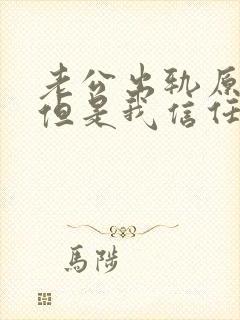 老公出轨原
但是我信任
馬陟